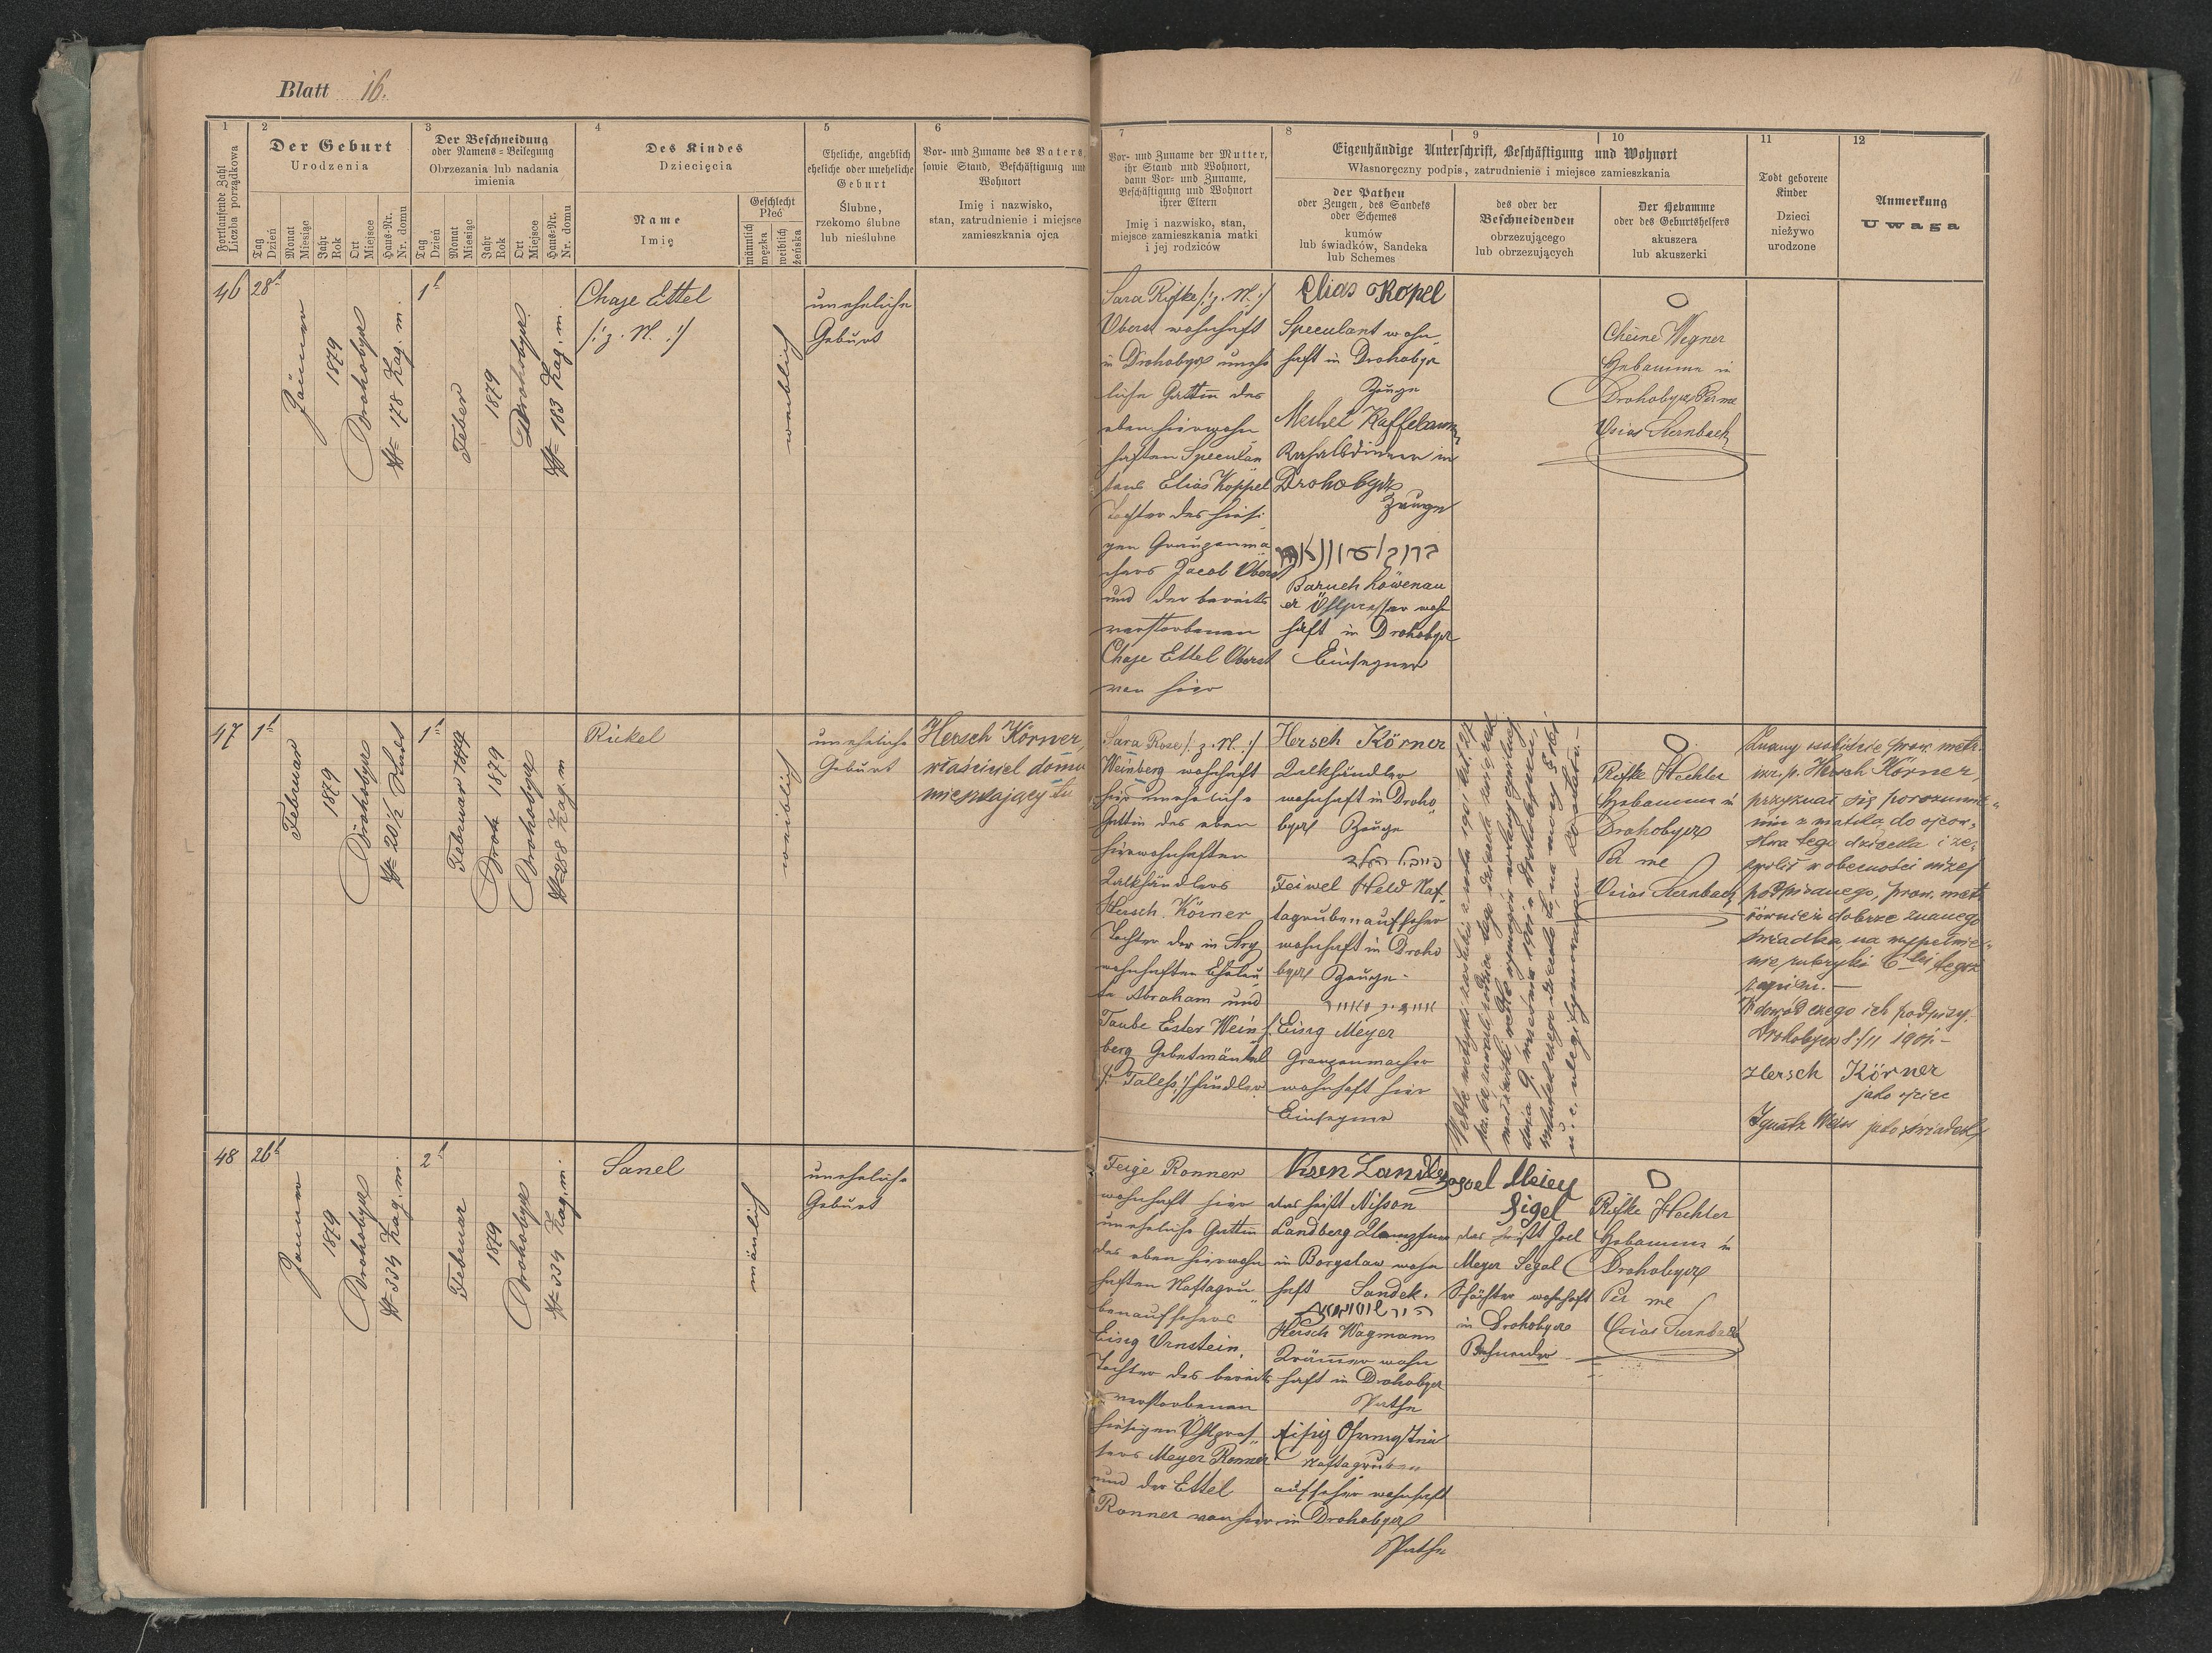 Blatt 16.
1
Fortlaufende Zahl
Liczba porządkowa
2
Der Geburt
Urodzenia
Tag
Dzień
Monat
Miesiąc
Jahr
Rok
Ort
Miejsce
Haus-Nr.
Nr. domu
3
Der Beschneidung
oder Namens-Beilegung
Obrzezania lub nadania
imienia
Tag
Dzień
Monat
Miesiąc
Jahr
Rok
Ort
Miejsce
Haus-Nr.
Nr. domu
4
Des Kindes
Dziecięcia
Name
Imię
Geschlecht
Płeć
männlich
męzka
weiblich
żeńska
5
Eheliche, angeblich
eheliche oder uneheliche
Geburt
Ślubne,
rzekomo ślubne
lub nieślubne
6
Vor- und Zuname des Vaters,
sowie Stand, Beschäftigung und
Wohnort
Imię i nazwisko,
stan, zatrudnienie i miejsce
zamieszkania ojca
7
Vor- und Zuname der Mutter,
ihr Stand und Wohnort,
dann Vor- und Zuname,
Beschäftigung und Wohnort
ihrer Eltern
Imię i nazwisko, stan,
miejsce zamieszkania matki
i jej rodziców
8
9
10
Eigenhändige Unterschrift, Beschäftigung und Wohnort
Własnoręczny podpis, zatrudnienie i miejsce zamieszkania
der Pathen
oder Zeugen, des Sandeks
oder Schemes
kumów
lub świadków, Sandeka
lub Schemes
des oder der
Beschneidenden
obrzezującego
lub obrzezujących
Der Hebamme
oder des Geburtshelfers
akuszera
lub akuszerki
11
Todt geborene
Kinder
Dzieci
nieżywo
urodzone
12
Anmerkung
Uwaga
46
28t
Jänner
1879
Drohobycz
№ 178 Zag. m.
1t
Feber
1879
Drohobycz
№ 183 Zag. m.
Chaje Ettel
/: z. N. :/
weiblich
uneheliche
Geburt
Sara Rifke /: z. N. :/
Oberst wohnhaft
in Drohobycz unehe
liche Gattin des
eben hierwohn
haften Speculan
tens Elias Koppel
Tochter des hiesi
gen Graupenma
chers Jacob Oberst
und der bereits
verstorbenen
Chaje Ettel Oberst
von hier
Elias Kopel
Speculant wohn
haft in Drohobycz
Zeuge
Meshel Kaffebaum
in
Drohobycz
Zeuge
Baruch Löwenau
er Öhlpresser wohn
haft in Drohobycz
Einsegner
Cheine Wegner
Hebamme in
Drohobycz Per me
Osias Sternbach
47
1t
Februar
1879
Drohobycz
№ 20 1/2
1t
Februar
1879
Drohobycz
№ 288 Zag. m
Rickel
weiblich
uneheliche
Geburt
Hersch Körner,
właściciel domu
mieszkający tu
Sara Rose /: z. N. :/
Weinberg wohnhaft
hier uneheliche
Gattin des eben
hierwohnhaften
Kalkhändlers
Hersch Körner
Tochter der in Stry
wohnhaften Eheleu
te Abraham und
Taube Ester Wein
berg Gebetmäntel
/: Taless :/ händler
Hersch Körner
Kalkhändler
wohnhaft in Droho
bycz Zeuge
Feiwel Held Naf
tagrubenaufseher
wohnhaft in Droho
bycz Zeuge
Eisig Meyer
Graupenmacher
wohnhaft hier
Einsegner
Rifke Hechler
Hebamme in
Drohobycz
Per me
Osias Sternbach
Znany osobiście prow. metr.
izr. p. Hersch Körner,
przyznał się porozumie-
niu z matką do ojcow-
stwa tego dziecka i ze-
zwolił w obecności niżej
podpisanego, prow. metr.
również dobrze znanego
świadka na wypełnie-
nie rubryki 6tej tegoż
zapisu.
W dowód czego ich podpisy.
Drohobycz 8/11 1901.
Hersch Körner
jako ojciec
Ignatz Weiss jako świadek
48
26t
Januar
1879
Drohobycz
№ 334 Zag. m.
2t
Februar
1879
Drohobycz
№ 334 Zag. m.
Sanel
mänlich
uneheliche
Geburt
Feige Ronner
wohnhaft hier
uneheliche Gattin
des eben hierwohn
haften Naftagru
benaufsehers
Eisig Ornstein,
Tochter des bereits
verstorbenen
hiesigen Öhlpres
sers Meyer Ronner
und der Ettel
Ronner von hier
das heißt Nisson
Landberg
in Boryslaw wohn
haft Sandek.
Hersch Wagmann
Krämer wohn
haft in Drohobycz
Pathe
Naftagruben
aufseher wohnhaft
in Drohobycz
Pathe
Meier
Sigel
das heißt Joel
Meyer Segal
Schächter wohnhaft
in Drohobycz
Beschneider
Rifke Hechler
Hebamme in
Drohobycz
Per me
Osias Sternbach